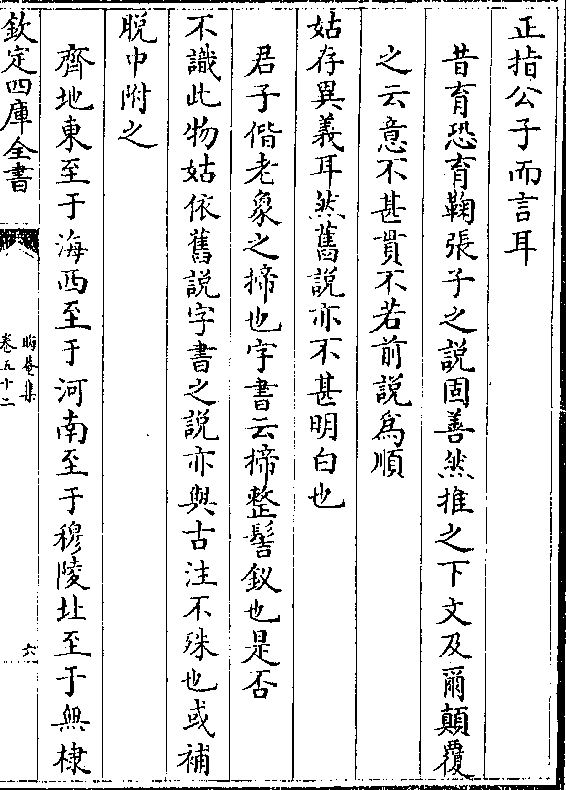 正指公子而言耳
昔育恐育鞠張子之説固善然推之下文及爾顛覆
之云意不甚貫不若前説為順
姑存異義耳然舊説亦不甚明白也
君子偕老象之揥也字書云揥整髻釵也是否
不識此物姑依舊説字書之説亦與古注不殊也或補
脱中附之
齊地東至于海西至于河南至于穆陵北至于無棣
欽定四庫全書
晦菴集
卷五十二
六